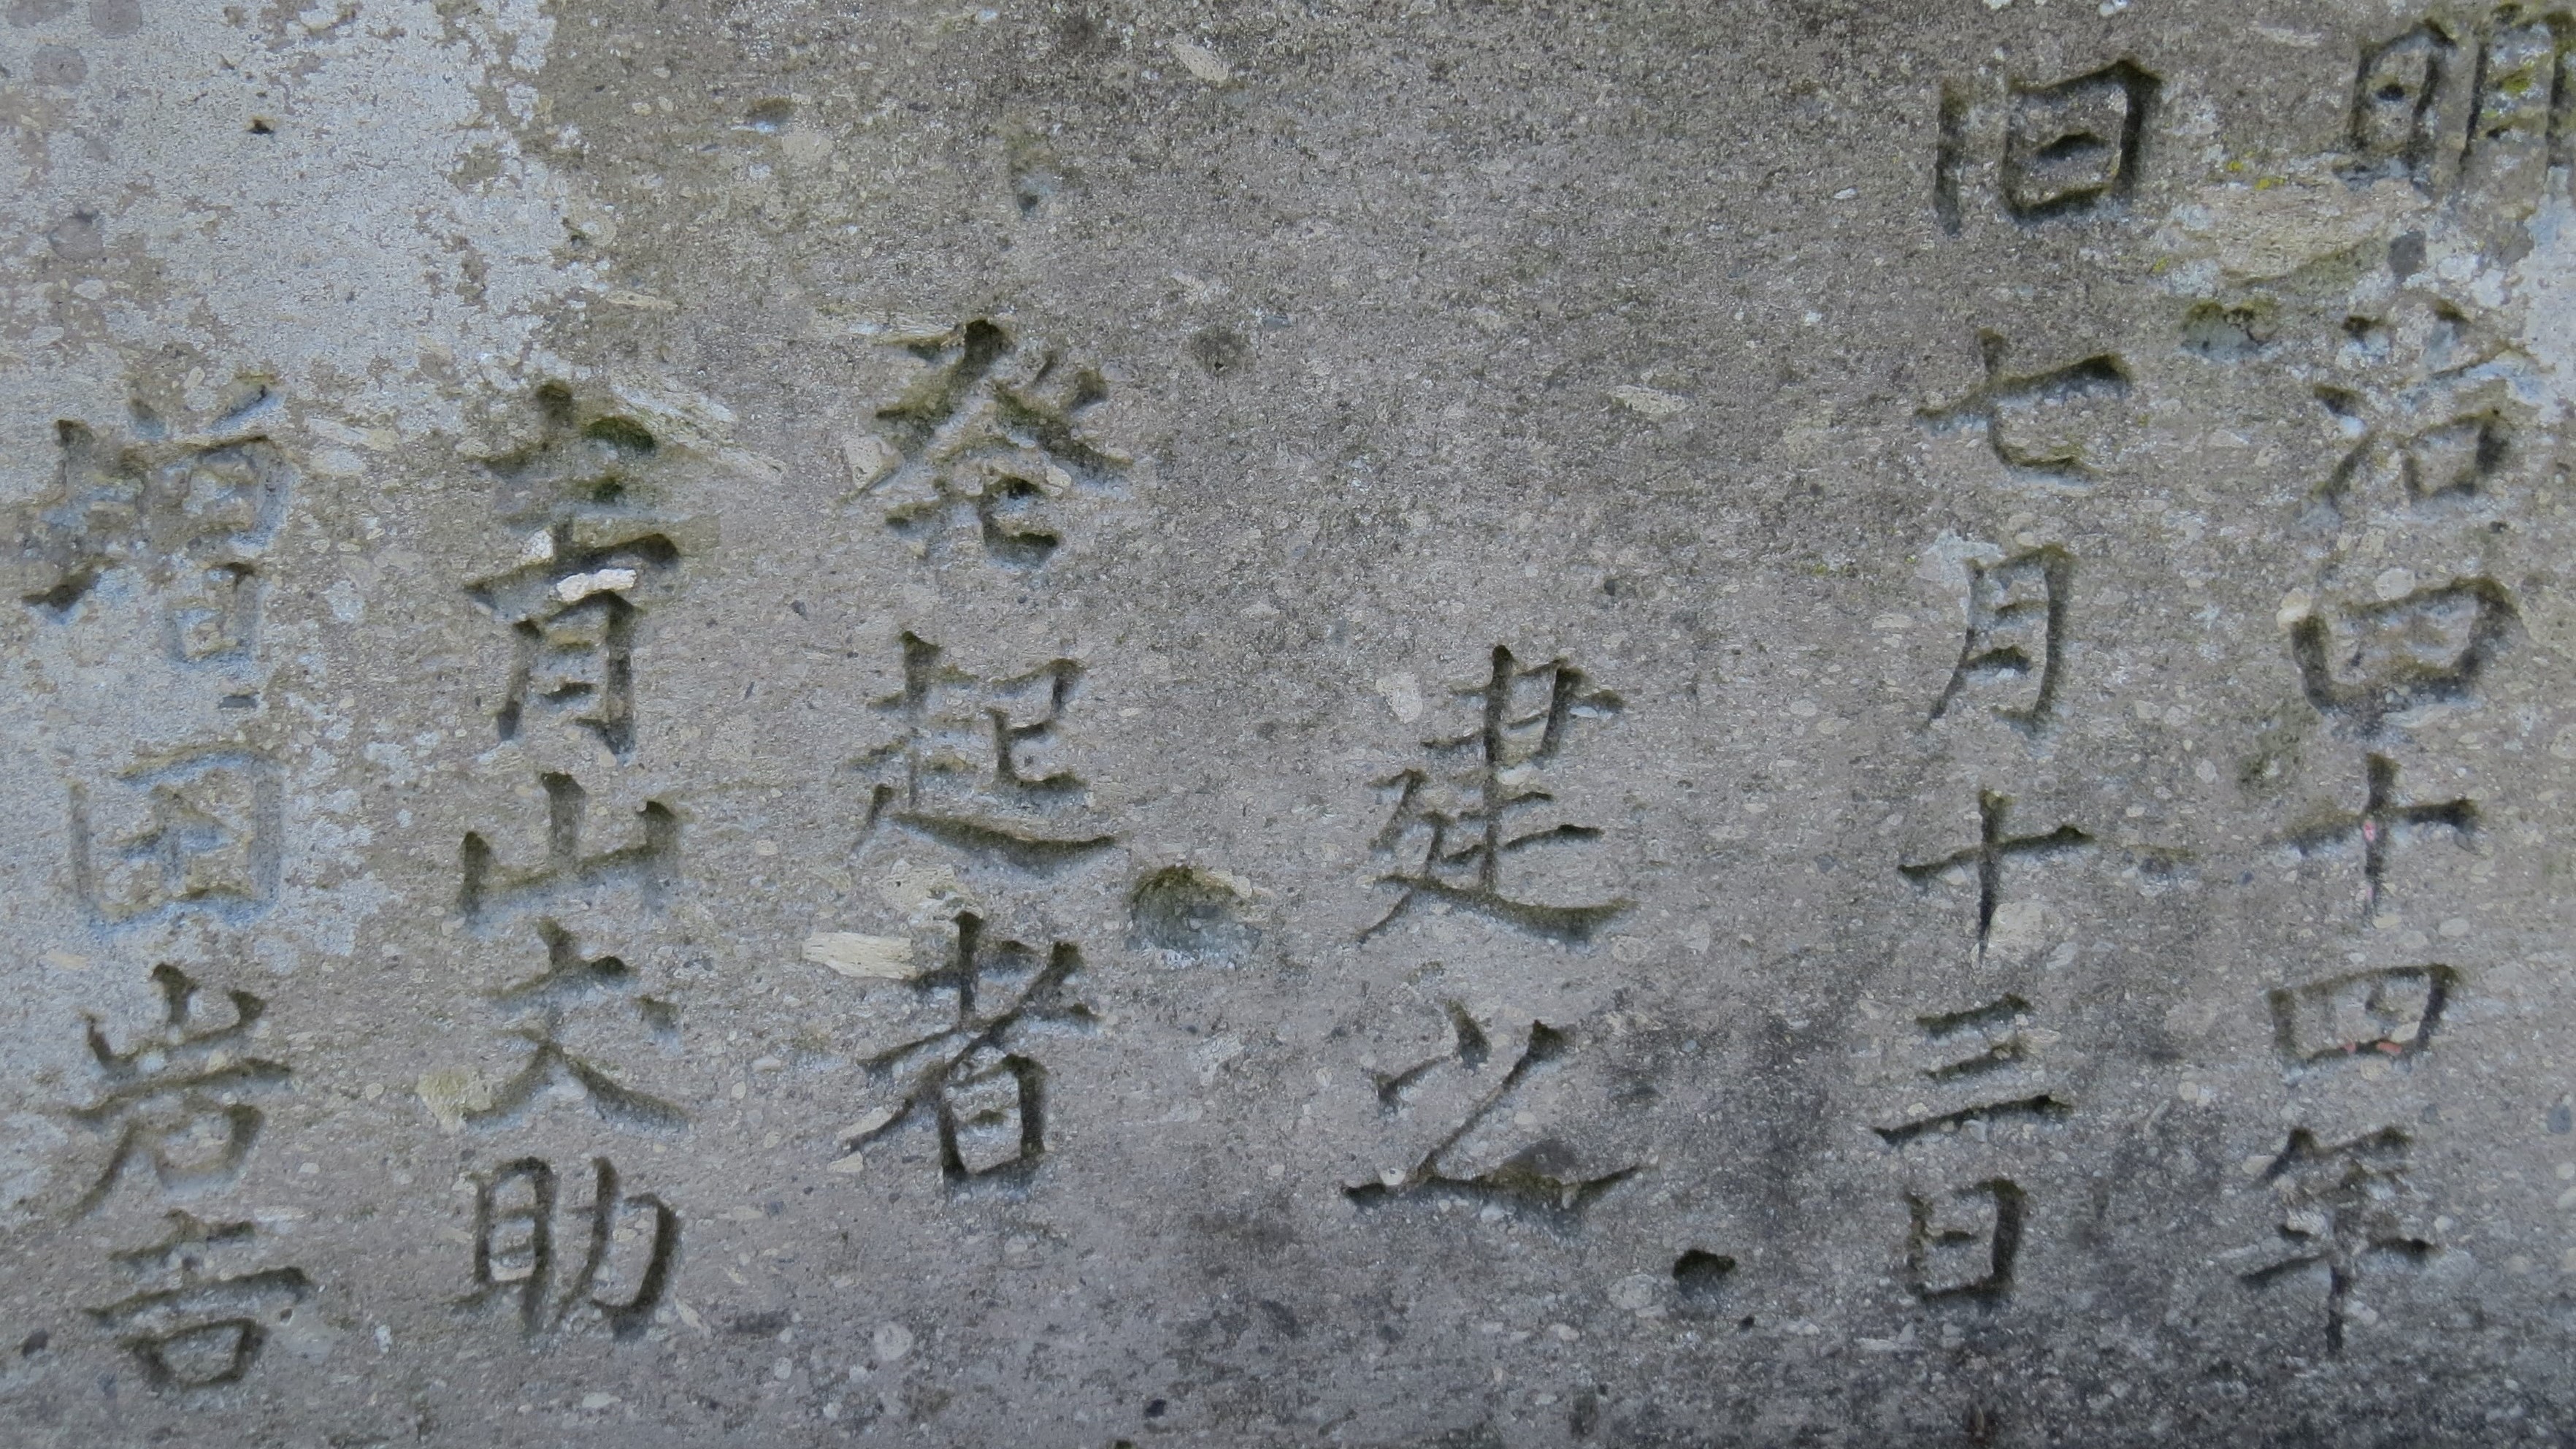 明治四十四年
旧七月十三日
建之
発起者
青山久助
増田岩吉